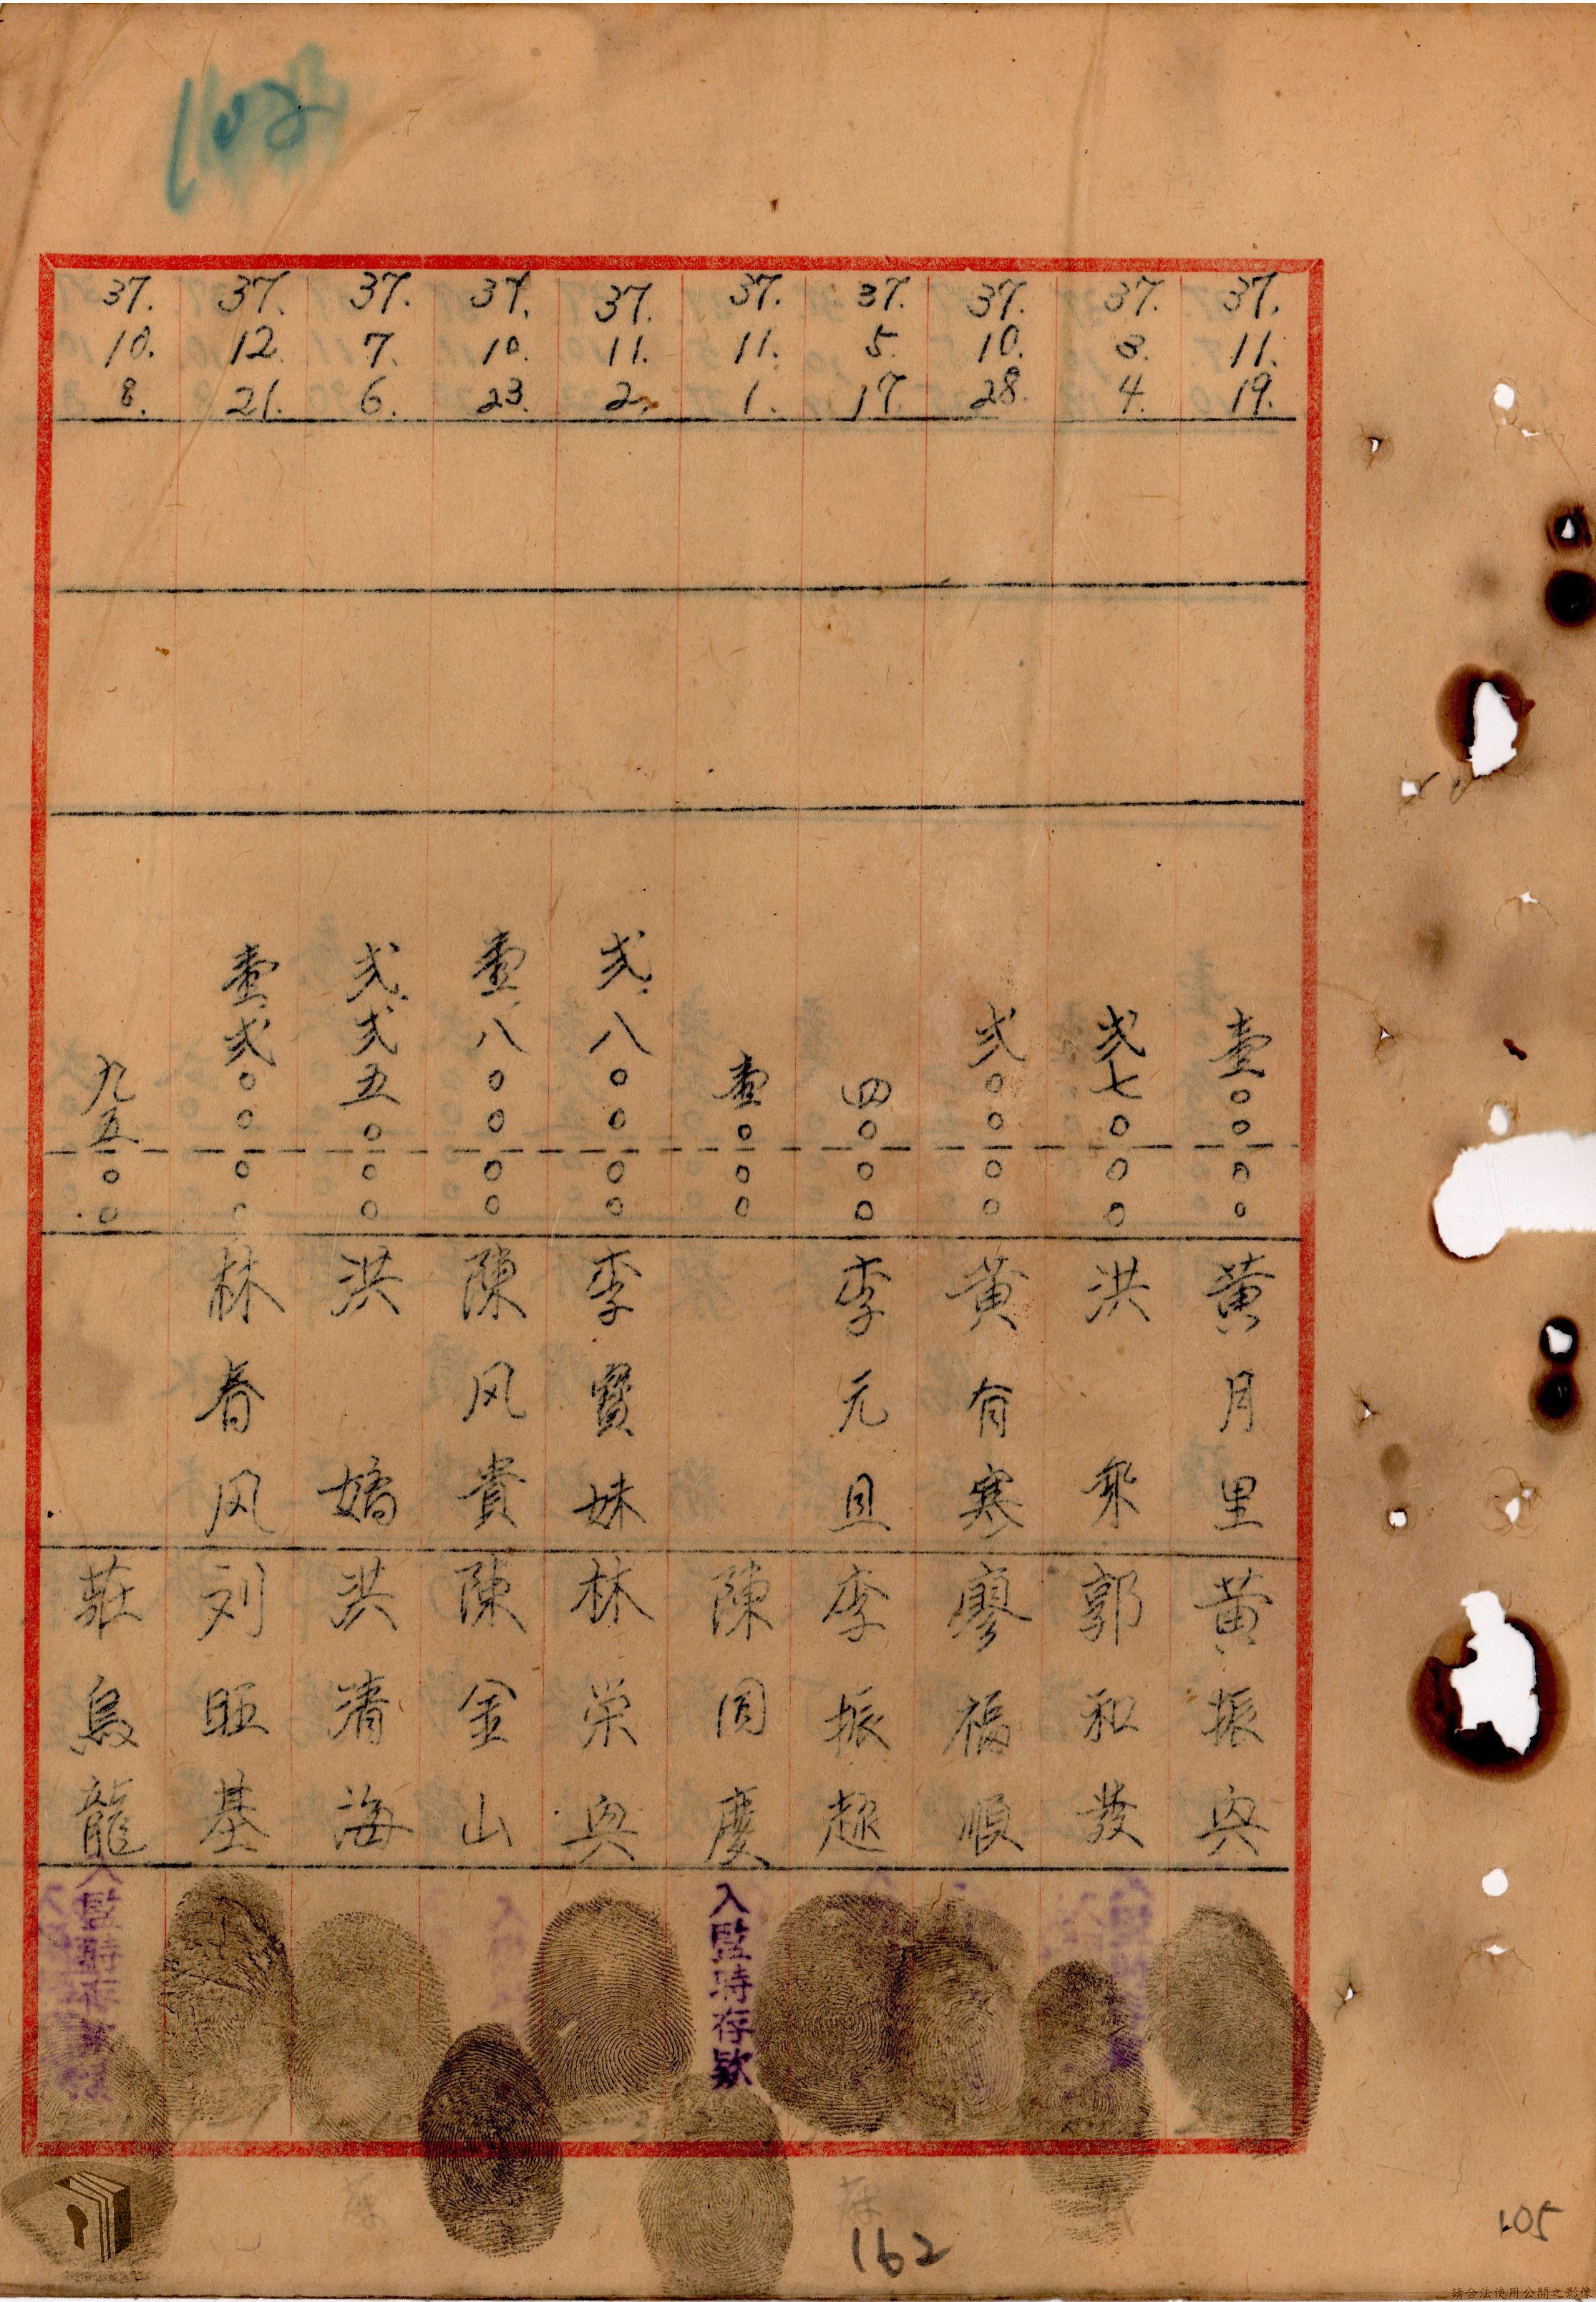 37. 11. 19. 壹〇〇〇〇 黄月里 黄振興
37. 8. 4. 弍七〇〇〇 洪 郭和發
37. 10. 28. 弍〇〇〇〇 黄有寒 廖福順
37. 5. 17. 四〇〇〇 李元且 李振趂
37. 11. 1. 壹〇〇〇 陳圓慶 入監時存欵
37. 11. 2. 弍.八〇〇〇〇 李寳妹 林栄興
37. 10. 23. 壹.八〇〇〇〇 陳风貴 陳金山
37. 7. 6. 弍.弍五〇〇〇 洪嬌 洪清海
37. 12. 21. 壹.弍〇〇〇〇 林春风 刘旺基
37. 10. 8. 九五〇〇 莊烏龍 入監時存欵
162
105
請合法使用公開之影像